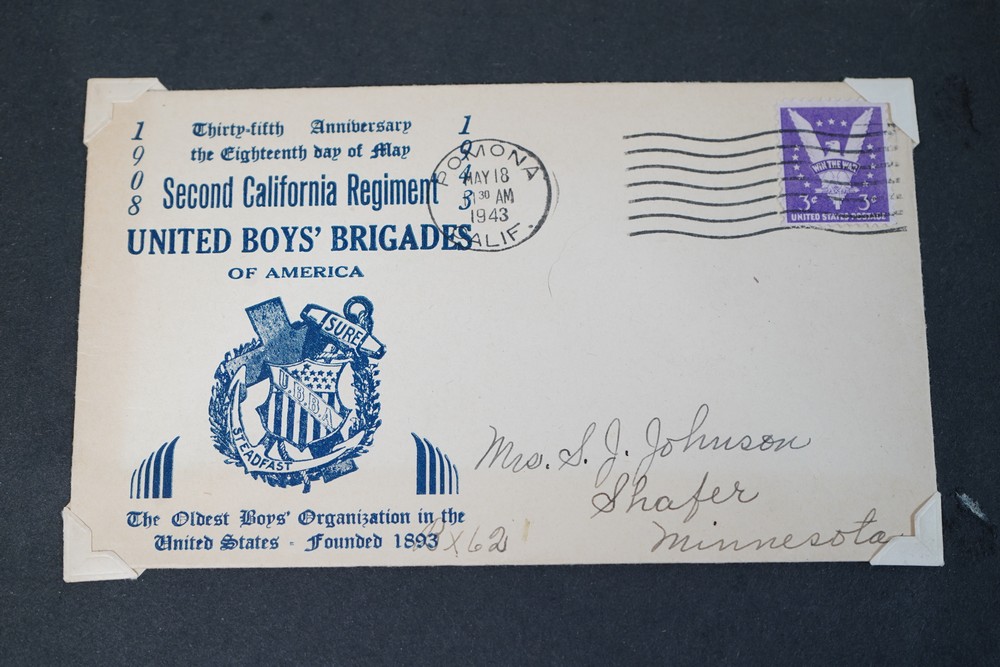 Thirty-fifth Anniversary
the Eighteenth day of May
1908
1943
Second California Regiment
UNITED BOYS' BRIGADES
OF AMERICA
SURE
U.B.B.A.
STEADFAST
The Oldest Boys' Organization in the
United States - Founded 1893
POMONA
MAY 18
30 AM
1943
CALIF.
WIN THE WAR
3¢ 3¢
UNITED STATES POSTAGE
Mrs. S. J. Johnson
Shafer
Minnesota
x62